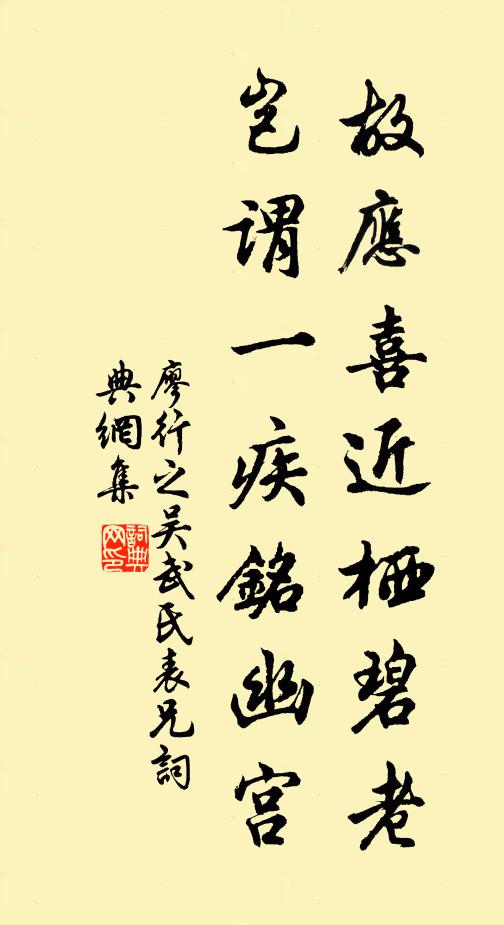 故應喜近栖碧老
豈謂一疾銘幽宮
廖行之吴武氏表兄詞
典網集
詞典網印